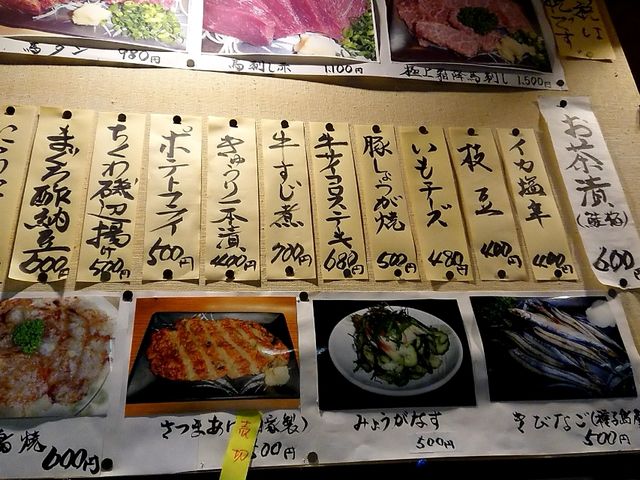 馬タン 980円
馬刺し赤 1,100円
極上霜降馬刺し 1,500円
まぐろ酢納豆 500円
ちくわ磯辺揚げ 500円
ポテトフライ 500円
きゅうり一本漬 400円
牛すじ煮 700円
牛サイコロステーキ 680円
豚しょうが焼 500円
いもチーズ 480円
枝豆 400円
イカ塩辛 400円
お茶漬
600
焼 600円
さつまあげ
家製)
売切
500円
みょうがなす
500円
きびなご(種子島産
500円